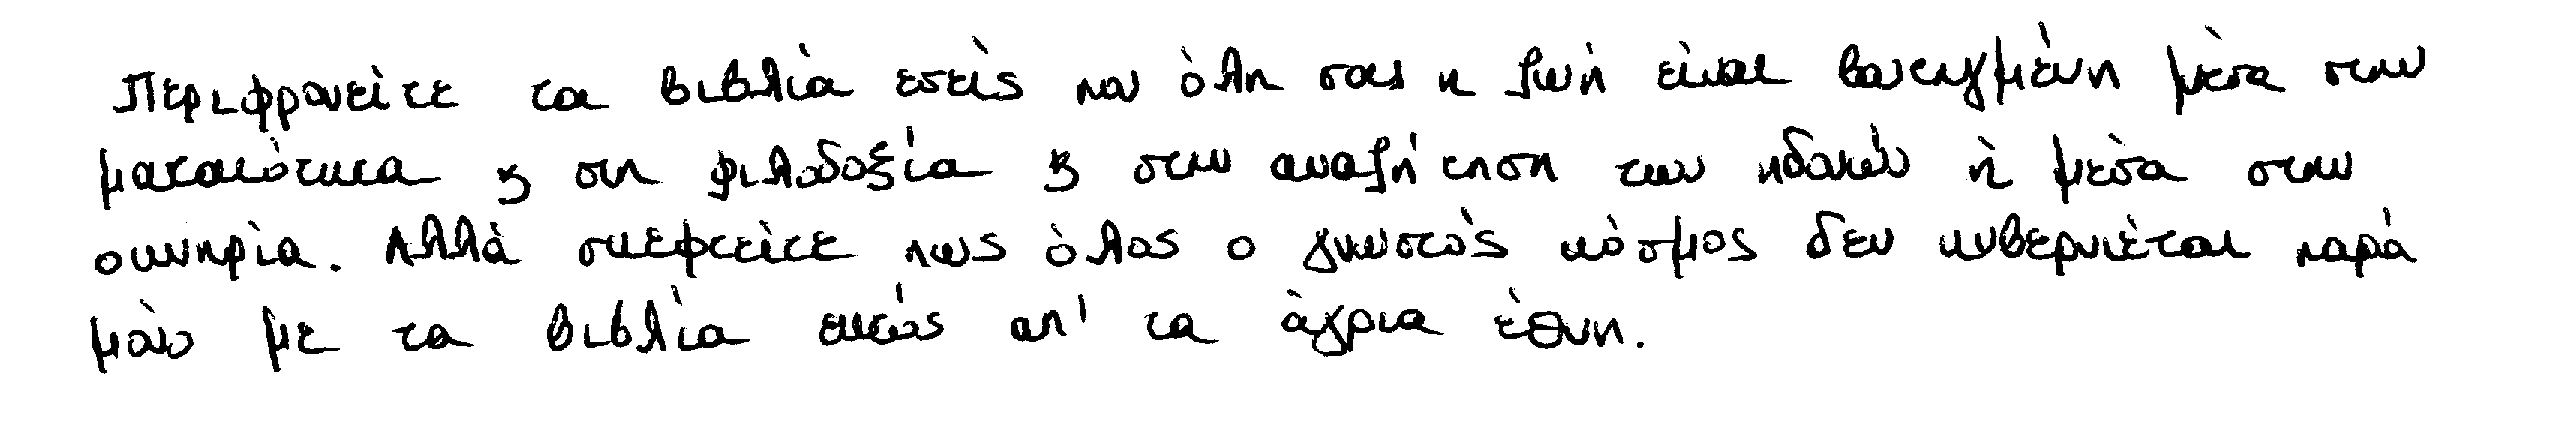 Περιφρονείτε τα βιβλία εσείς που όλη σας η ζωή είναι βουτηγμένη μέσα στην
ματαιότητα ϗ στη φιλοδοξία ϗ στην αναζήτηση των ηδονών ή μέσα στην
οκνηρία. Αλλά σκεφτείτε πως όλος ο γνωστός κόσμος δεν κυβερνιέται παρά
μόνο με τα βιβλία εκτός απ' τα άγρια έθνη.